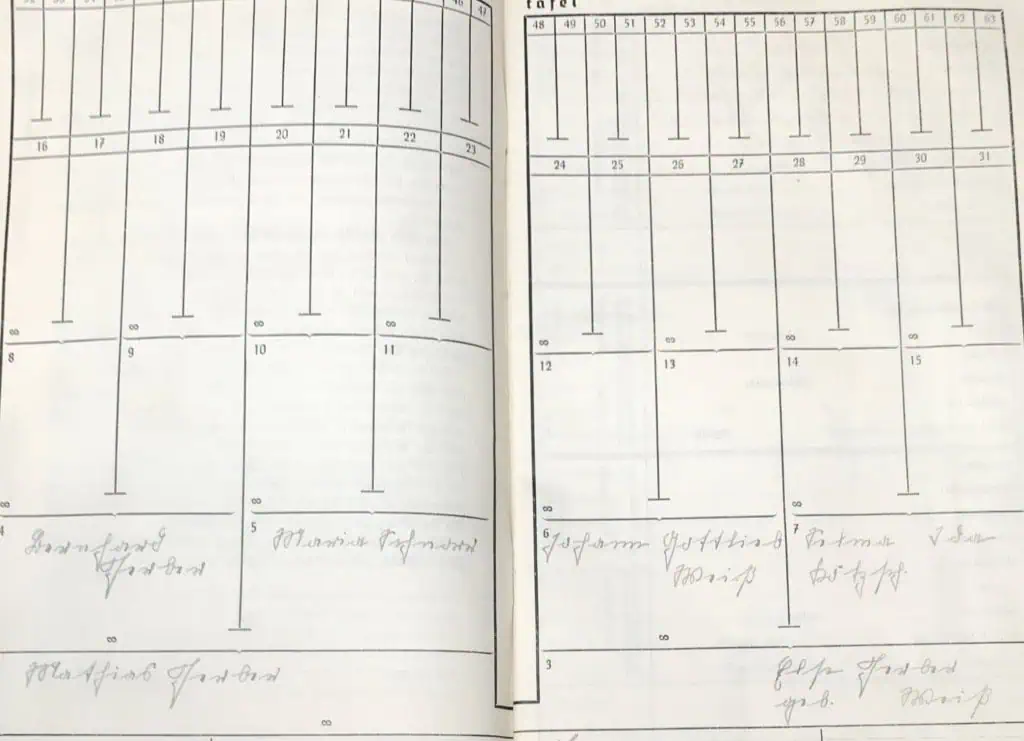 47
tafel
48 49 50 51 52 53 54 55 56 57 58 59 60 61 62 63
16 17 18 19 20 21 22 23
24 25 26 27 28 29 30 31
∞ ∞ ∞ ∞
∞ ∞ ∞ ∞
8 9 10 11
12 13 14 15
∞ ∞
∞ ∞
4 Bernhard
5 Maria
6 Johann Gottlieb
Weiß
7 Selma Ida
Kötzsch
∞
∞
Mathias
3 Else
geb. Weiß
∞